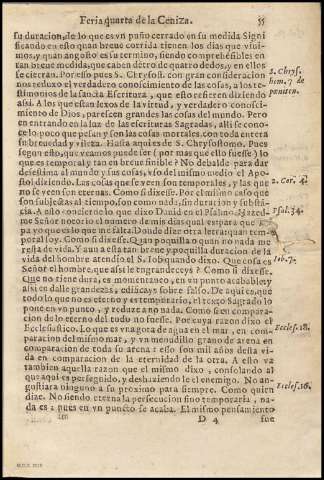 Feria quarta de la Ceniza. 55
su duracion, de lo que es vn puño cerrado en su medida Signi
ficando en esto quan breue corrida tienen los dias que viui-
mos, y quan angosto es su termino, siendo comprehẽsibles en
tan breue medida, que caben dẽtro de quatro dedos, y en ellos
se cierran. Por esto pues S. Chrysost. con gran consideracion
nos reduxo el verdadero conocimiento de las cosas, a los te-
stimonios de la sancta Escritura, que esto es
assi. A los que estan lexos de la virtud, y verdadero conosci-
miento de Dios, parescen grandes las cosas del mundo. Pero
en entrando en la luz de las escrituras Sagradas, alli se cono-
ce lo poco que pesan y son las cosas mortales, con toda entera
su breuedad y vileza. Hasta aqui es de S. Chrysostomo. Pues
segun esto, que veamos puede ser (por mas que ello fuesse) lo
que es temporal y tan en breue finible? No de balde para dar
Apo-
stol diziendo. Las cosas que se veen son temporales, y las que
no se veen son eternas. Como si dixesse. Por el mismo caso que
son subjectas al tiempo, son como nada, sin duracion y substã-
cia. A esto concierto lo que dixo Dauid en el Psalmo. Hazed-
me Señor notorio el numero de mis dias qual es para que se-
pa yo que es lo que me falta. Donde dize otra letra: quan tem-
poral soy. Como si dixesse. Quan poquillo o quan no nada me
resta de vida. Y aun a esta tan breue y poquilla duracion de la
vida del hombre atendio el S. Iob quando dixo. Que cosa es
Señor el hombre, que assi le engrandeceys? Como si dixesse.
Que no tiene dura, es momentaneo, en vn punto acabable, y
assi en darle grandezas, edificays sobre falso. De aqui es, que
todo lo que no es eterno y es temporario, el texto Sagrado lo
pone en vn punto, y reduze a no nada. Como si en compara-
cion de lo eterno del todo no fuesse. Por cuya razon dixo el
Ecclesiastico. Lo que es vna gota de agua en el mar, en com-
paracion del mismo mar, y vn menudillo grano de arena en
comparacion de toda su arena: esso son mil años desta vi-
da en comparacion de la eternidad de la otra. A esto va
tambien aquella razon que el mismo dixo, consolando al
que aqui es perseguido, y deshaziendo le el enemigo. No an-
gustiara ninguno a su proximo para siempre. Como quien
dize. No siendo eterna la persecucion sino temporaria, na-
da es: pues en vn puncto se acaba. El mismo pensamiento
D 4 fue
2. Chrys.
hom. 7. de
peniten.
2. Cor. 4.
Psal. 34.
Iob. 7.
Eccles. 18.
Eccles. 16.